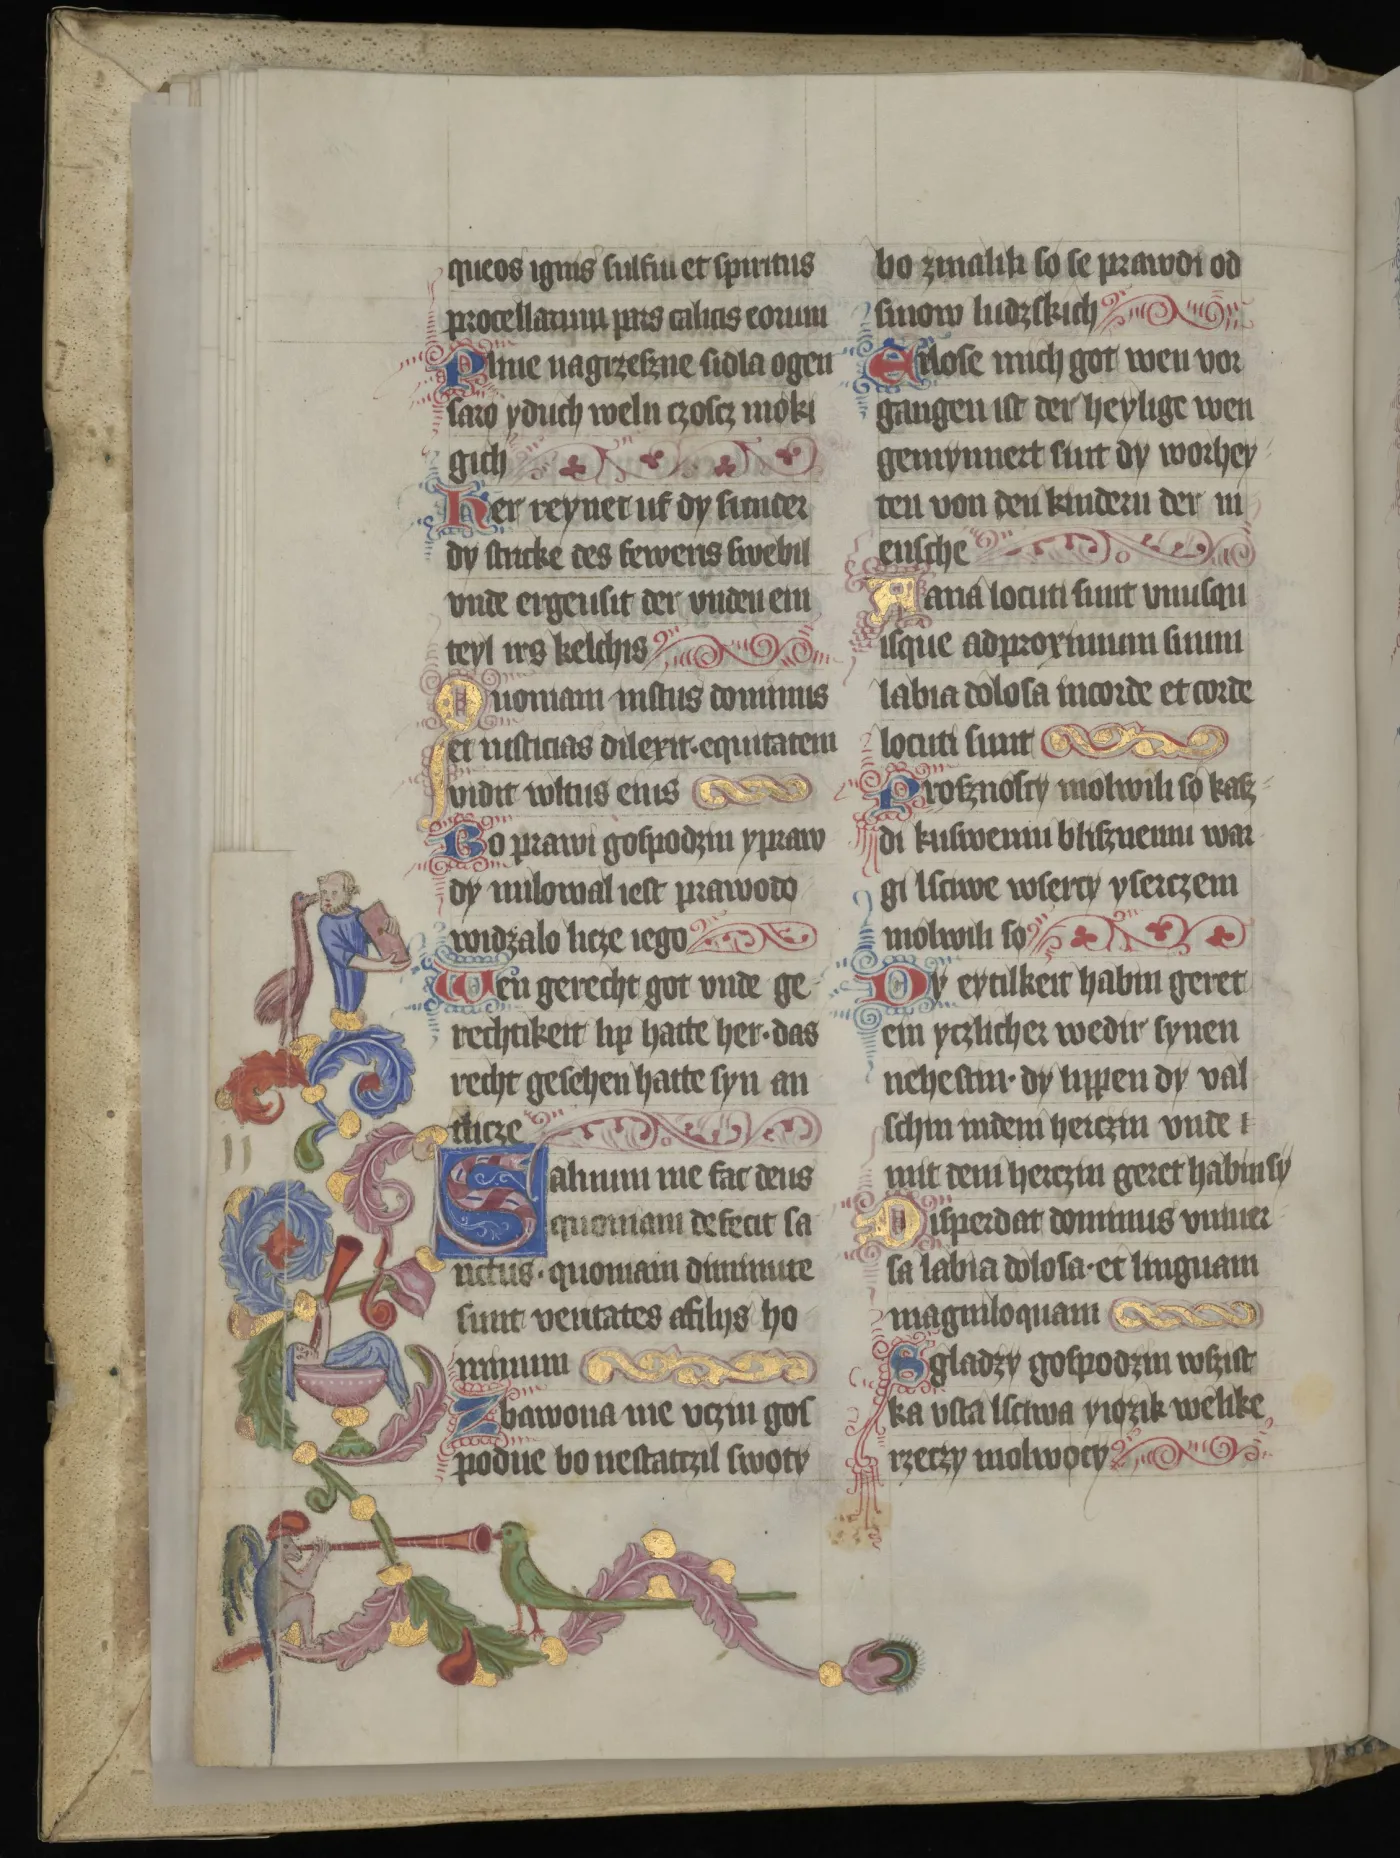 queos ignis sulfur et spiritus
procellarum pars calicis eorum
Plune nagrzeszne sidla ogen
saro yduch weln czoscz moki
gich
Her reynet uf dy sunder
dy stricke des fewers swebil
vnde ergeusit der vnden ein
teyl irs kelchis
Quoniam iustus dominus
et iusticias dilexit · equitatem
vidit wltus eius
Bo prawi gospodzin ypraw
dy milowal iest prawoto
widzalo licze iego
Wen gerecht got vnde ge
rechtikeit lip hatte her · das
recht gesehen hatte syn an
tlicze
Saluum me fac deus
quoniam defecit sa
nctus · quoniam diminute
sunt veritates afilijs ho
minum
Zbawona me vczin gos
podne bo nestatczil swoty
bo zmalili so se prawdi od
sinow ludzskich
Erlose mich got wen vor
gangen ist der heylige wen
gemynnert sint dy worhey
ten von den kindern der m
ensche
Uana locuti sunt vnusqu
isque adproximum suum
labia dolosa incorde et corde
locuti sunt
Proznoscy molwili so kasz
di kuswemu blisznemu war
gi lsciwe wsercy yserczem
molwili so
Dy eytilkeit habin geret
ein yczlicher wedir synen
nehestin · dy lippen dy val
schin indem herczin vnde
mit dem herczin geret habin sy
Disperdat dominus vniuer
sa labia dolosa · et linguam
magniloquam
Sgladzy gospodzin wszist
ka vsta lsciwa yiozik welike
rzeczy molwocy